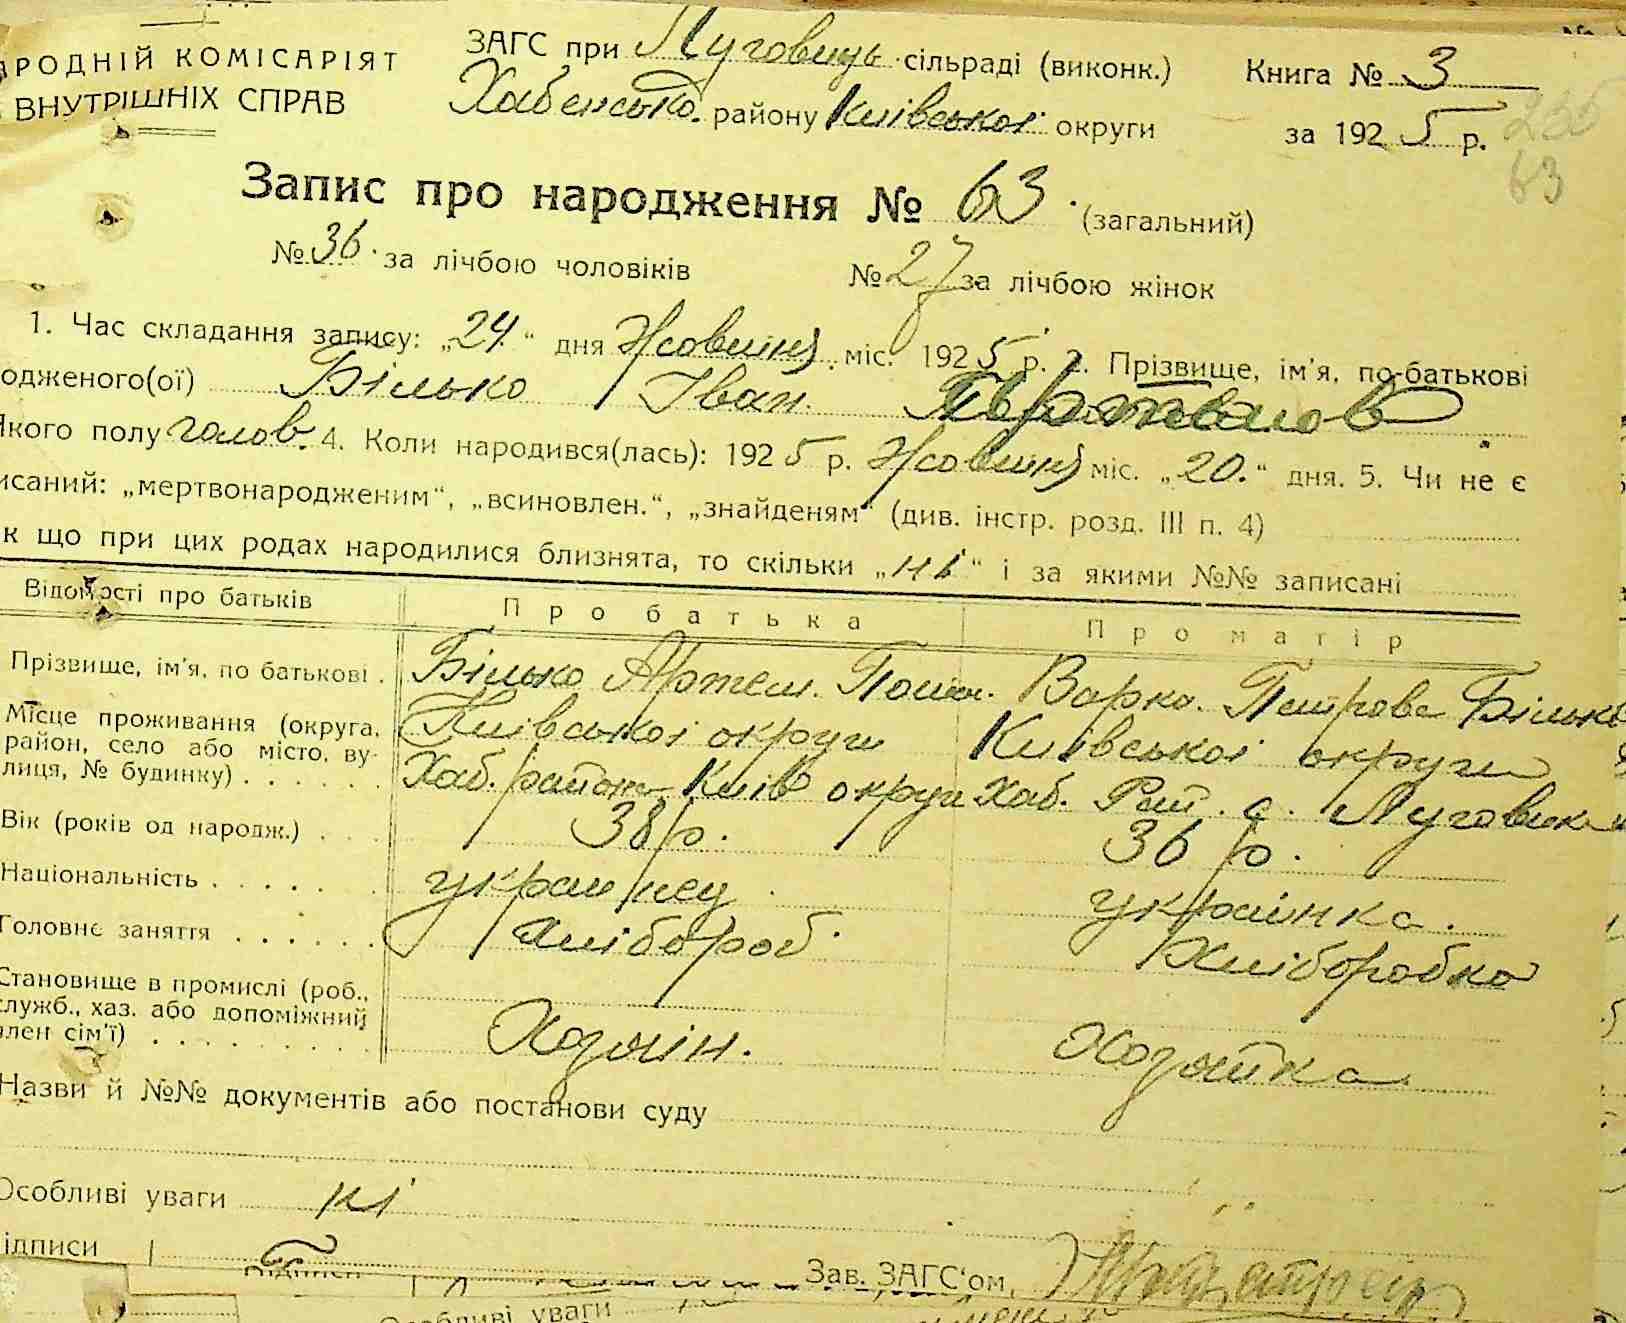 РОДНІЙ КОМІСАРІЯТ
ВНУТРІШНІХ СПРАВ
ЗАГС при Луговиць. сільраді (виконк.)
Хабенсько. району Київської округи
Книга № 3
за 1925 р.
235
63
Запис про народження № 63. (загальний)
№ 36. за лічбою чоловіків № 27 за лічбою жінок
1. Час складання запису: „24“ дня Жовтня міс. 1925 р. 2. Прізвище, ім'я, по-батькові
одженого(ої) Білько Іван
Якого полу чолов. 4. Коли народився(лась): 1925 р. Жовтня міс. „20.“ дня. 5. Чи не є
исаний: „мертвонародженим“, „всиновлен.“, „знайденям“ (див. інстр. розд. III п. 4)
к що при цих родах народилися близнята, то скільки „ні“ і за якими №№ записані
Відомості про батьків Про батька Про матір
Прізвище, ім'я, по батькові . Білько Артем. Варка. Петрова Білько
Місце проживання (округа, район, село або місто, вулиця, № будинку) . . . . . . Київської округи Київської округи
Хаб. район Київ округи Хаб. Рай. с. Луговики
Вік (років од народж.) . . . 38 р. 36 р.
Національність . . . . . . українец українка.
Головне заняття . . . . . . Хлібороб. Хліборобка
Становище в промислі (роб., служб., хаз. або допоміжний член сім'ї) . . . . . . . . . Хозяїн. Хозяйка
Назви й №№ документів або постанови суду
Особливі уваги ні
ідписи
Зав. ЗАГС'ом
Особливі уваги